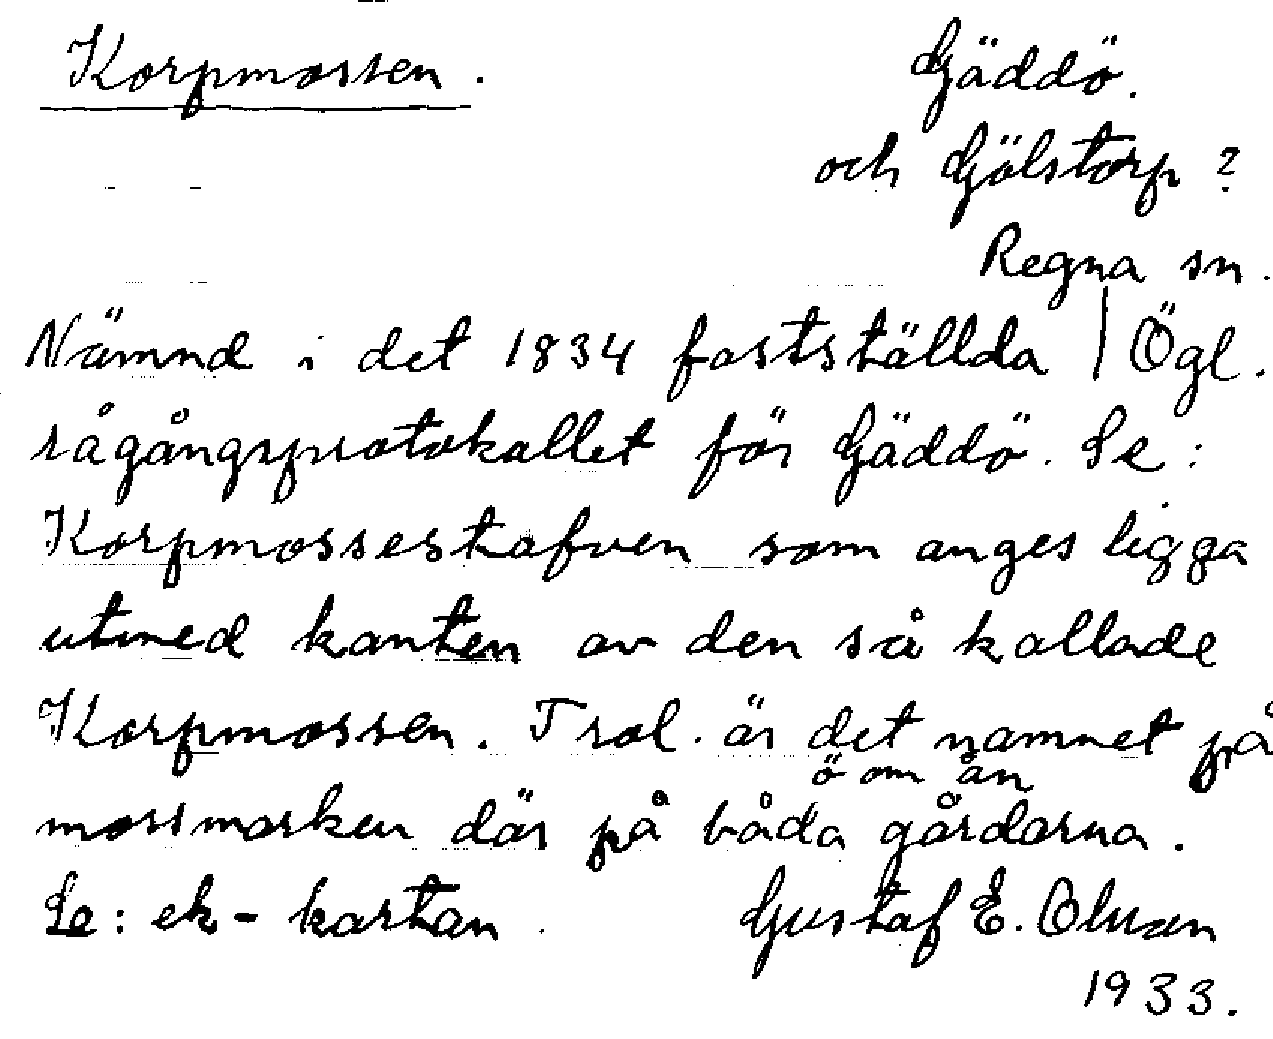 Korpmossen.
Gäddö.
och Gölstorp?
Regna sn.
Ögl.
Nämnd i det 1834 fastställda
rågångsprotokollet för Gäddö. Se:
Korpmossestafven som anges ligga
utmed kanten av den så kallade
Korpmossen. Trol. är det namnet på
ö om ån
mossmarken där på båda gårdarna.
Se: ek-kartan.
Gustaf E. Olsson
1933.